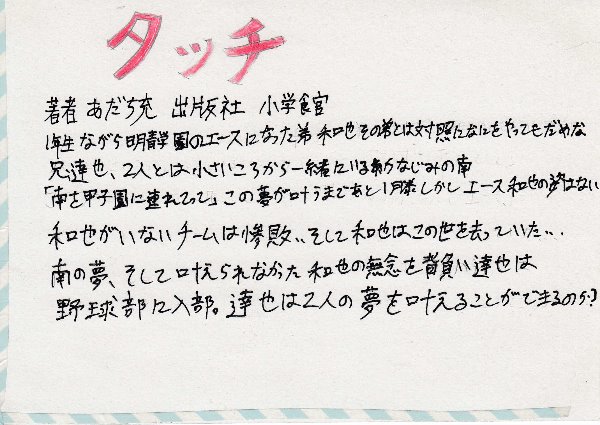 タッチ
著者 あだち充 出版社 小学食官
1年生ながら明青学園のエースになった弟和也その弟とは対照になにをやってもだめな
兄達也、2人とは小さいころから一緒にいる幼なじみの南
「南を甲子園に連れてって」この夢が叶うまであと1勝しかしエース和也の姿はない
和也がいないチームは惨敗‥そして和也はこの世を去っていた‥
南の夢、そして叶えられなかった和也の無念を背負い達也は
野球部に入部。達也は2人の夢を叶えることができるのか?